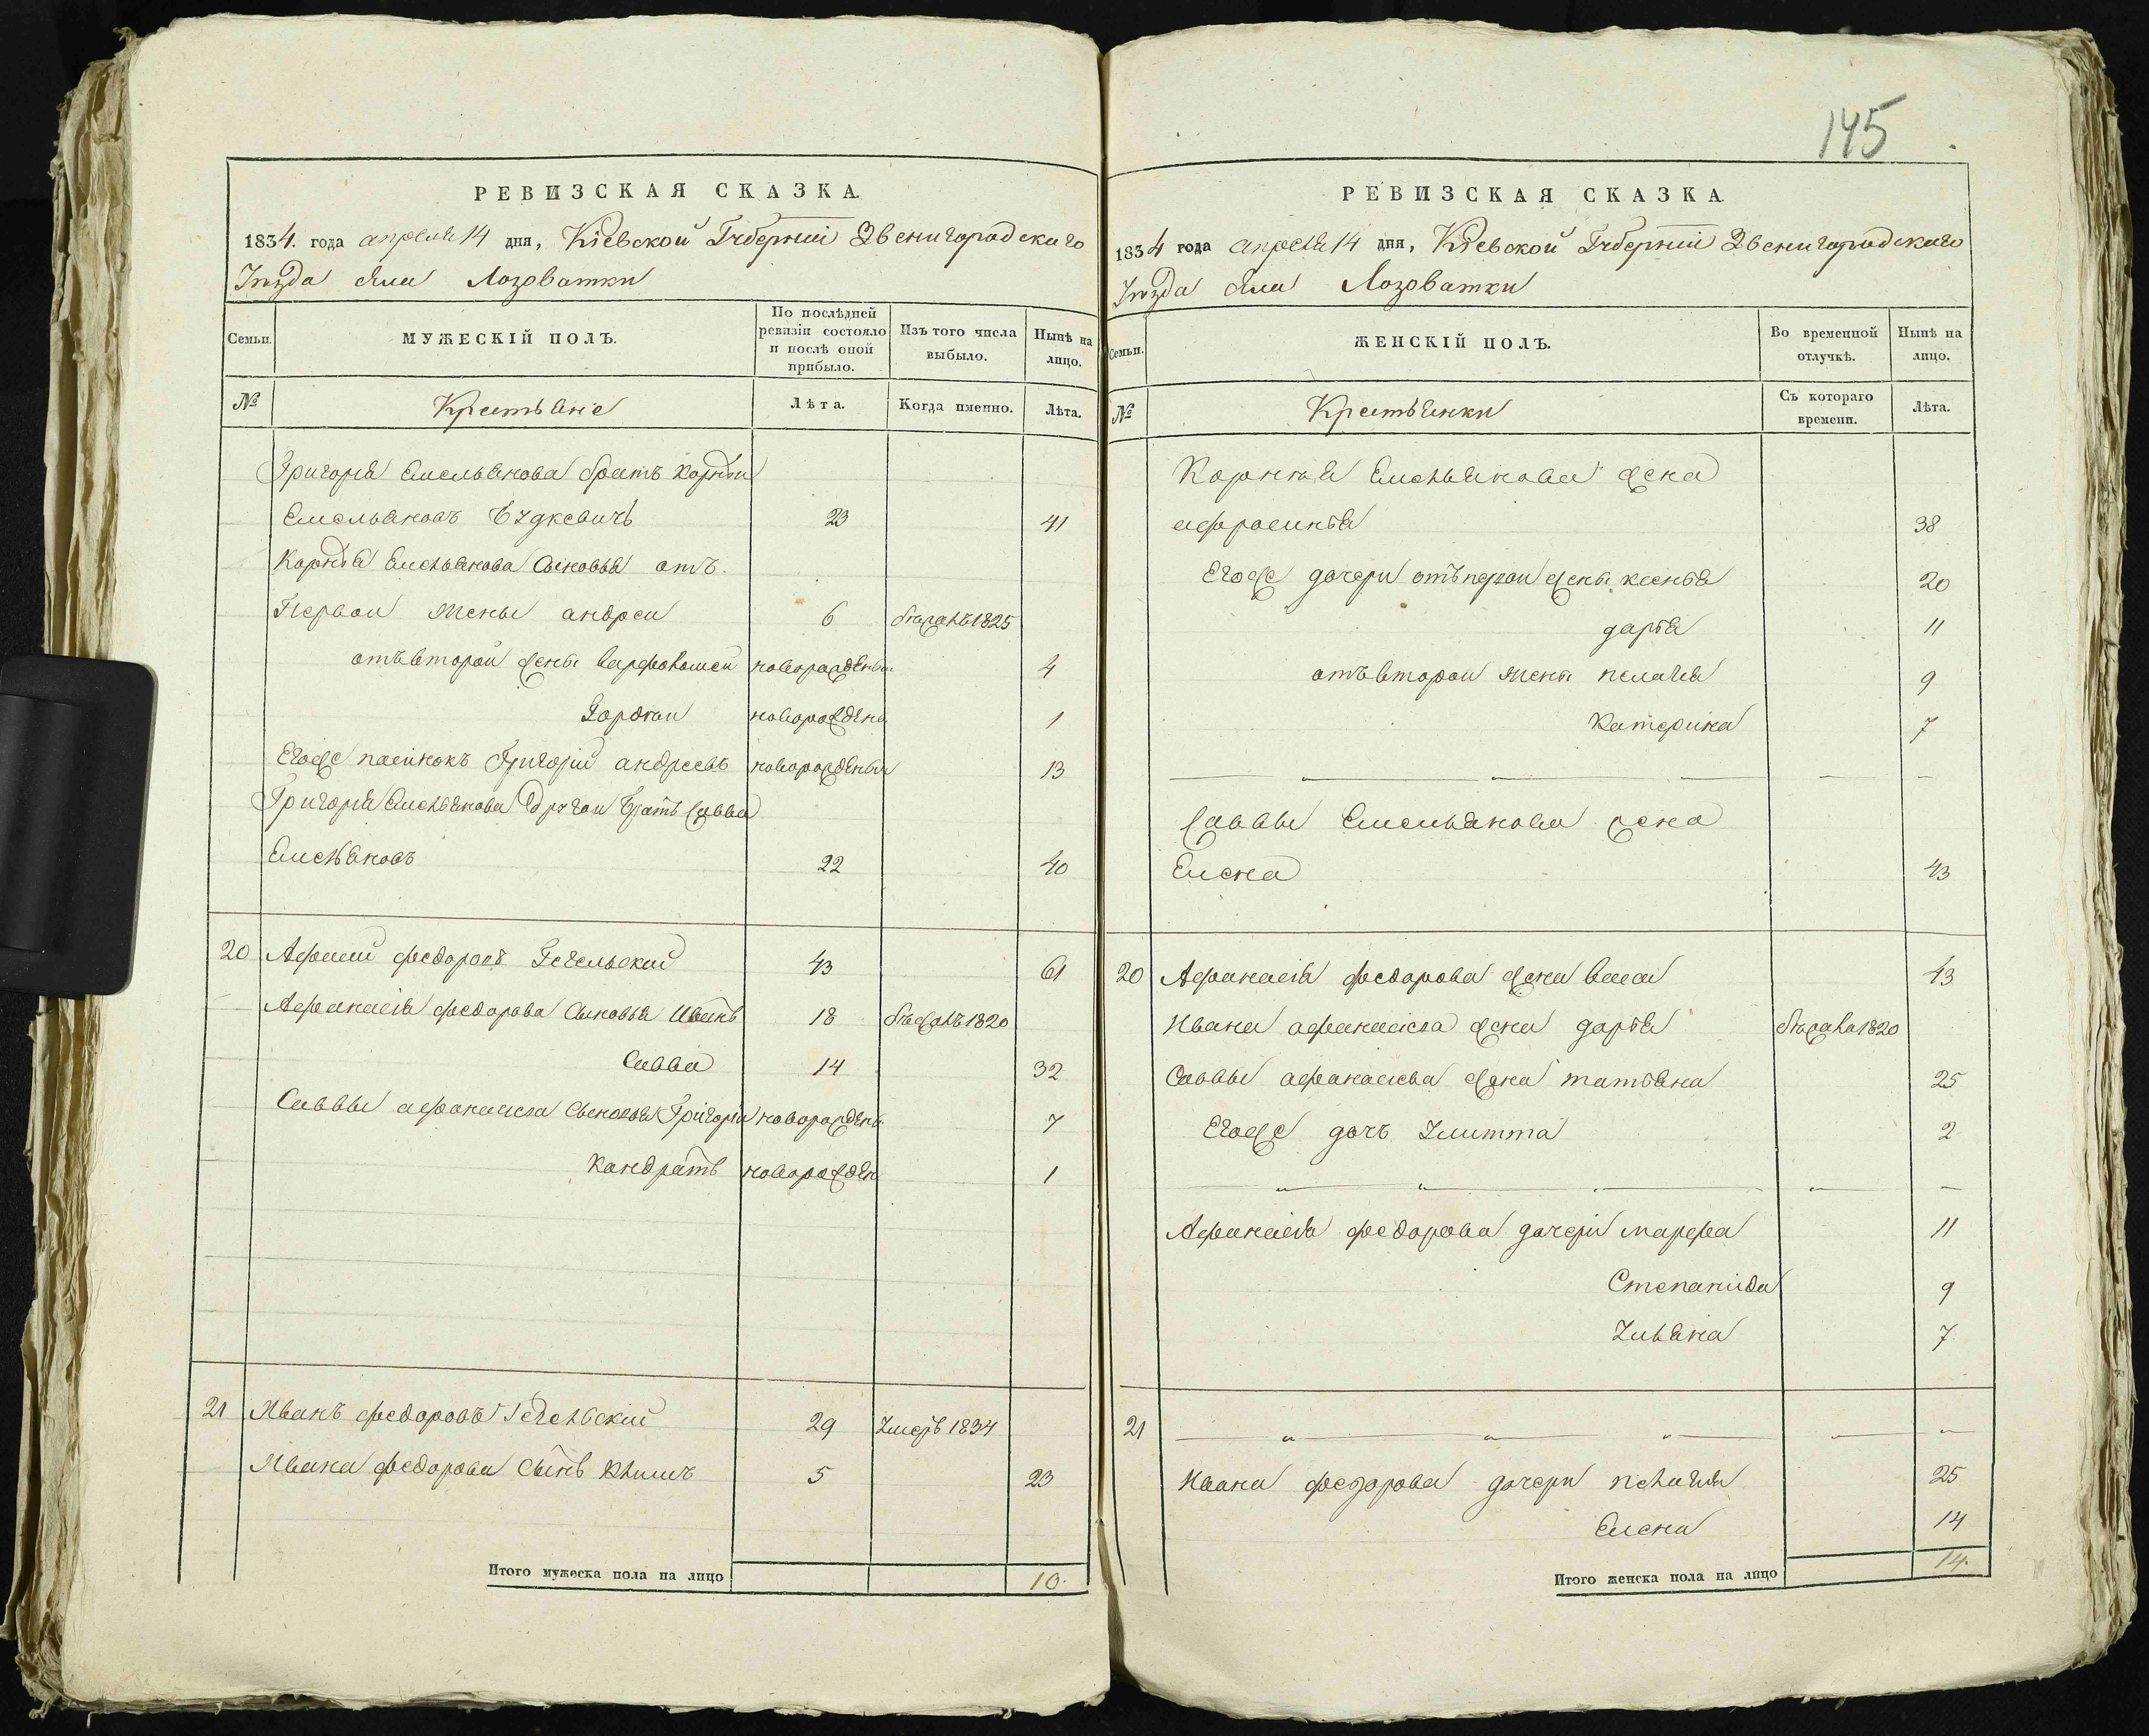 145
РЕВИЗСКАЯ СКАЗКА.
1834. года апреля 14 дня, Кіевской Губерніи Звенигородскаго
Уѣзда села Лозоватки
Семьи.
МУЖЕСКІЙ ПОЛЪ.
По послѣдней ревизіи состояло и послѣ оной прибыло.
Изъ того числа выбыло.
Нынѣ на лицо.
№ Крестьяне Лѣта. Когда именно. Лѣта.
Григорія Емельянова братъ Корнѣи
Емельяновъ 23 41
Корнѣя Емельянова Сыновья отъ
Первои жены андреи 6 бѣжалъ 1825
отъ второй жены варфоломеи новорожденыи 4
Гордѣи новорожден 1
Егоже пасинокъ Григорій андреевъ новорожденыи 13
Григорія Емельянова Другои Братъ Савва
Емельяновъ 22 40
20 федоровъ 43 61
Афанасія федорова Сыновья Иванъ 18 бѣжалъ 1820
Савва 14 32
Саввы афанасева Сыновья Григоріи новорожден 7
Кандратъ новорожден 1
21 Иванъ федоровъ 29 Умеръ 1834
Ивана федорова Сынъ Климъ 5 23
Итого мужеска пола на лицо 10.
РЕВИЗСКАЯ СКАЗКА.
1834 года апреля 14 дня, Кіевской Губерніи Звенигородскаго
Уѣзда села Лозоватки
Семьи.
ЖЕНСКІЙ ПОЛЪ.
Во временной отлучкѣ.
Нынѣ на лицо.
№ Крестьянки Съ котораго времени. Лѣта.
Корнѣя Емельянова жена
афросинья 38
Егоже дочери отъ первои жены ксенья 20
дарья 11
отъ второи жены пелагия 9
Катерина 7
Саввы Емельянова жена
Елена 43
20 Афанасія федорова жена васса 43
Ивана афанасева жена дарья бѣжала 1820
Саввы афанасева жена татьяна 25
Егоже дочь Улитта 2
Афанасія федорова дочери марфа 11
Степанида 9
Ульяна 7
21
Ивана федорова дочери пелагия 25
Елена 14
Итого женска пола на лицо 14.